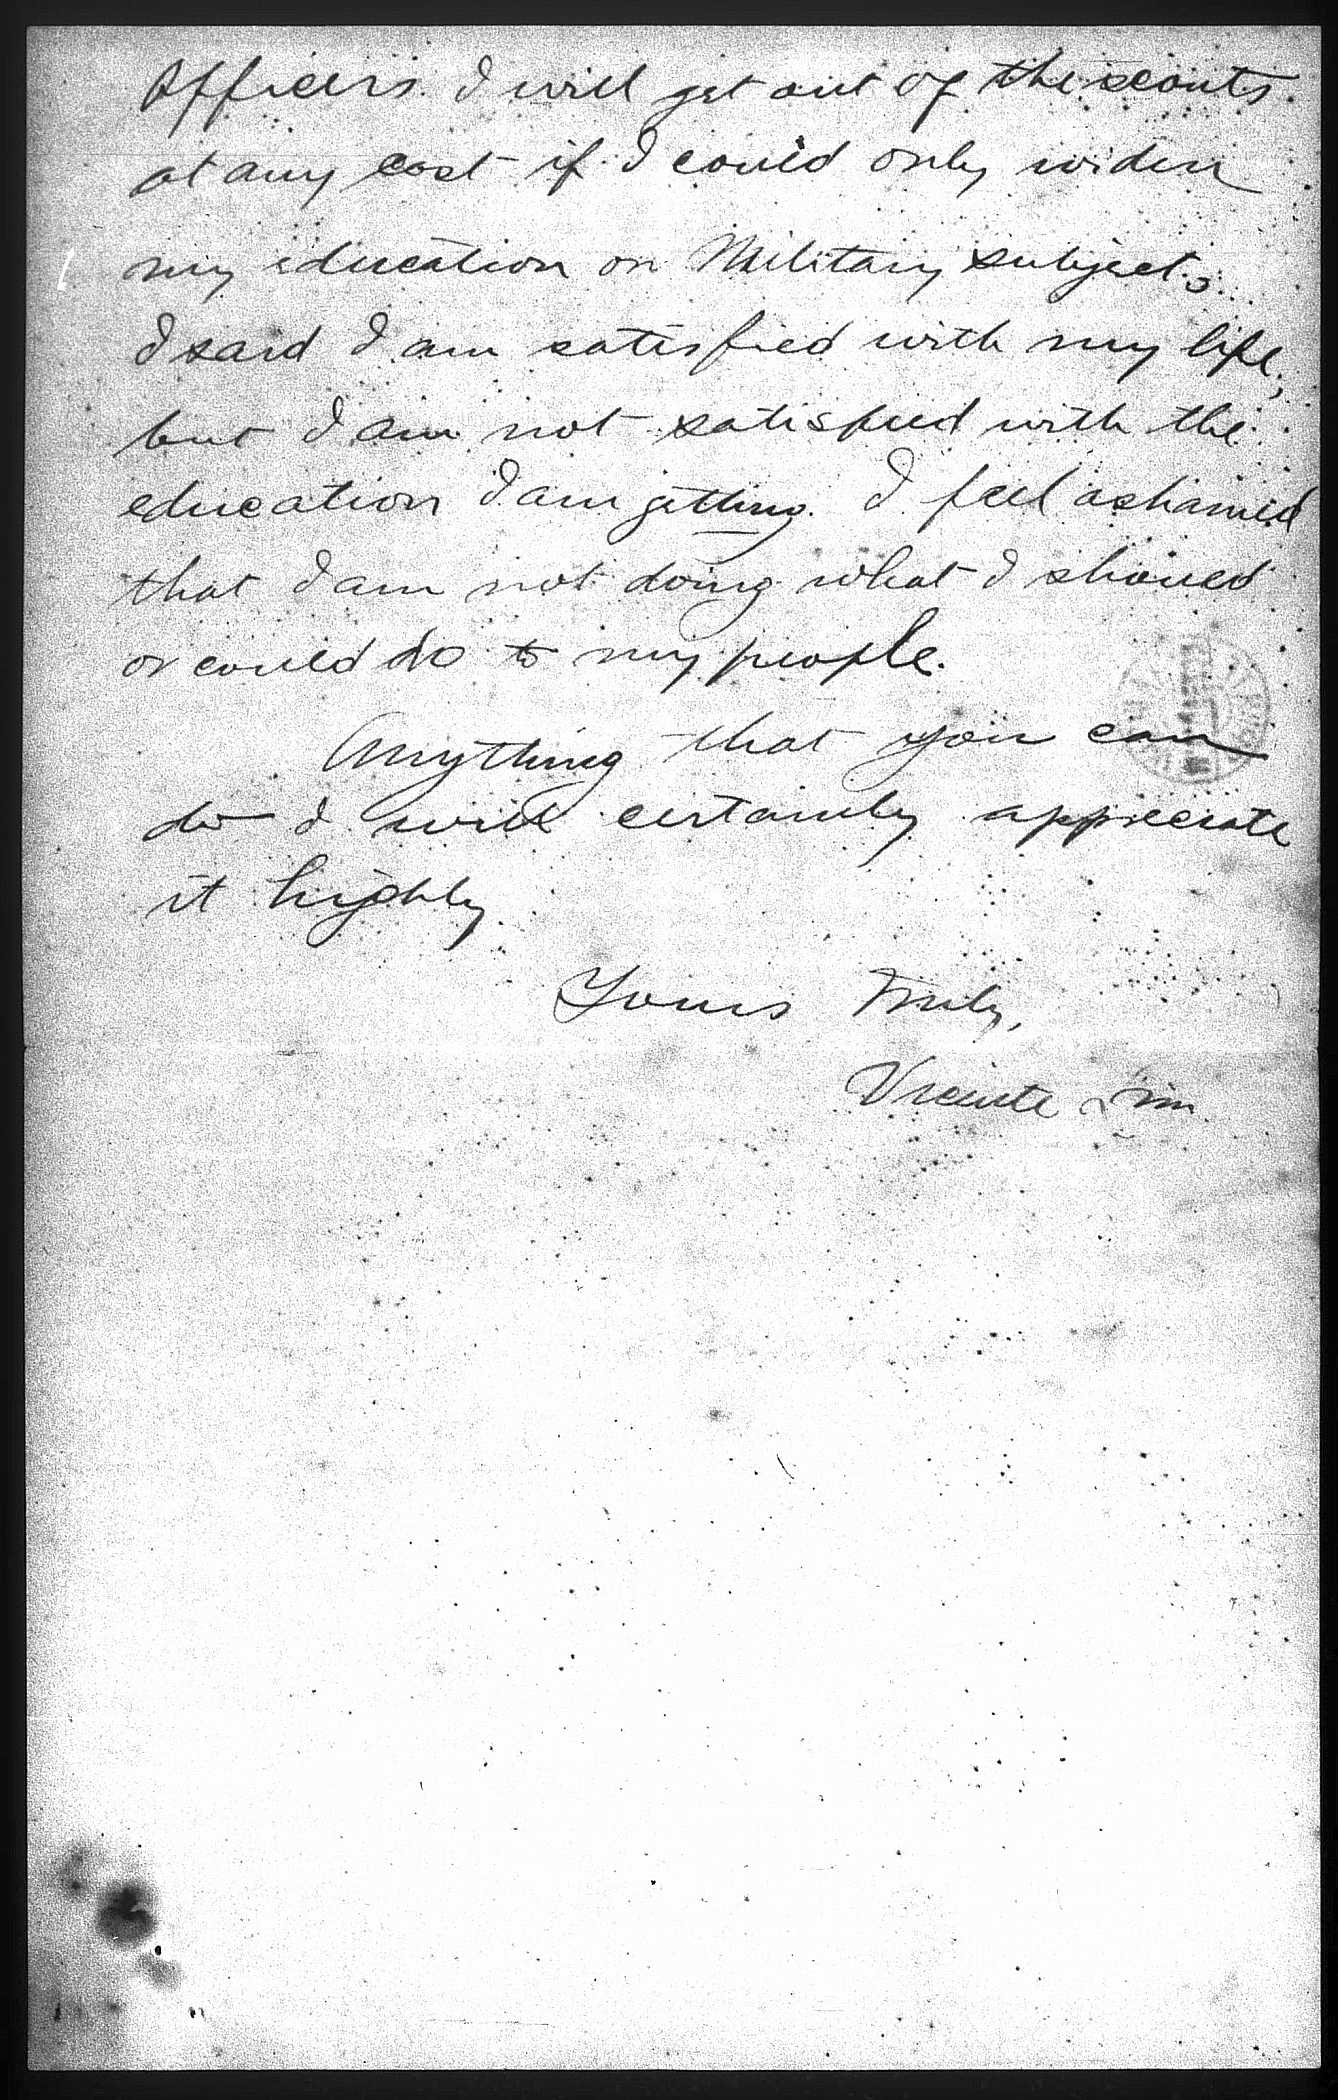 Officers. I will get out of the scouts
at any cost if I could only widen
my education on Military subjects.
I said I am satisfied with my life,
but I am not satisfied with the
education I am getting. I feel ashamed
that I am not doing what I should
or could do to my people.
Anything that you can
do I will certainly appreciate
it highly.
Yours Truly,
Vicente Lim